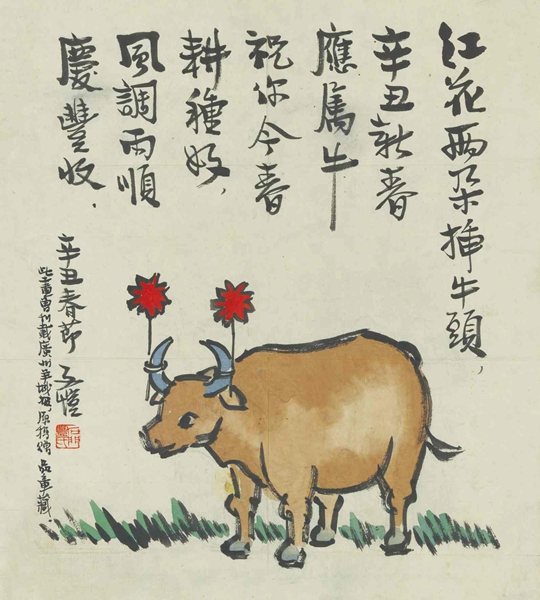 红花兩朵插牛頭，
辛丑新春
應屬牛
祝你今春
耕種好，
風調雨順
慶豐收，
辛丑春節 子愷
此畫曾刊載廣州羊城報，原稿贈